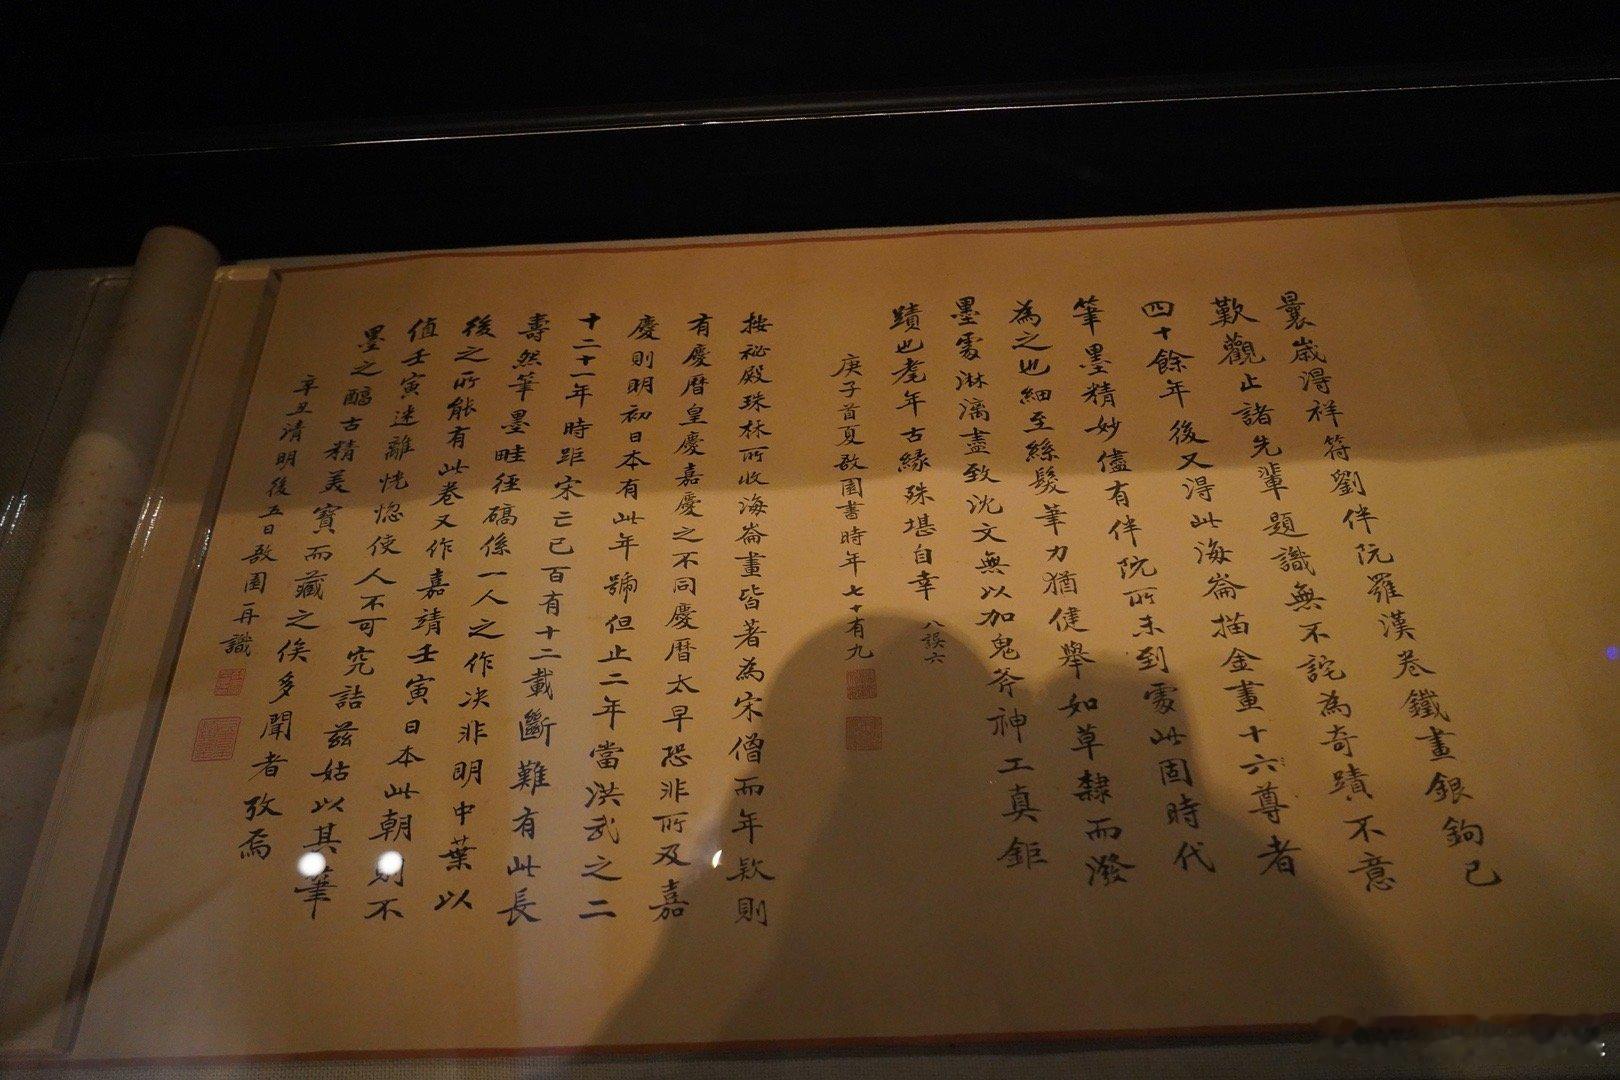 曩歲淂祥符劉伴阮羅漢卷鐵畫銀鉤已
歎觀止諸先輩題識無不詫為奇蹟不意
四十餘年後又淂此海崙描金畫十六尊者
筆墨精妙儘有伴阮所未到處此固時代
為之也細至絲髮筆力猶健舉如草隸而潑
墨處淋漓盡致沈文無以加鬼斧神工真鉅
蹟也耄年古緣殊堪自幸 八誤六
庚子首夏敔園書時年七十有九
按祕殿珠林所收海崙畫皆著為宋僧而年款則
有慶曆皇慶嘉慶之不同慶曆太早恐非所及嘉
慶則明初日本有此年號但止二年當洪武之二
十二十一年時距宋亡已百有十二載斷難有此長
壽然筆墨畦徑礄係一人之作决非明中葉以
後之所能有此卷又作嘉靖壬寅日本此朝則不
值壬寅迷離恍惚使人不可究詰茲姑以其筆
墨之醇古精美寶而藏之俟多聞者攷焉
辛丑清明後五日敔園再識